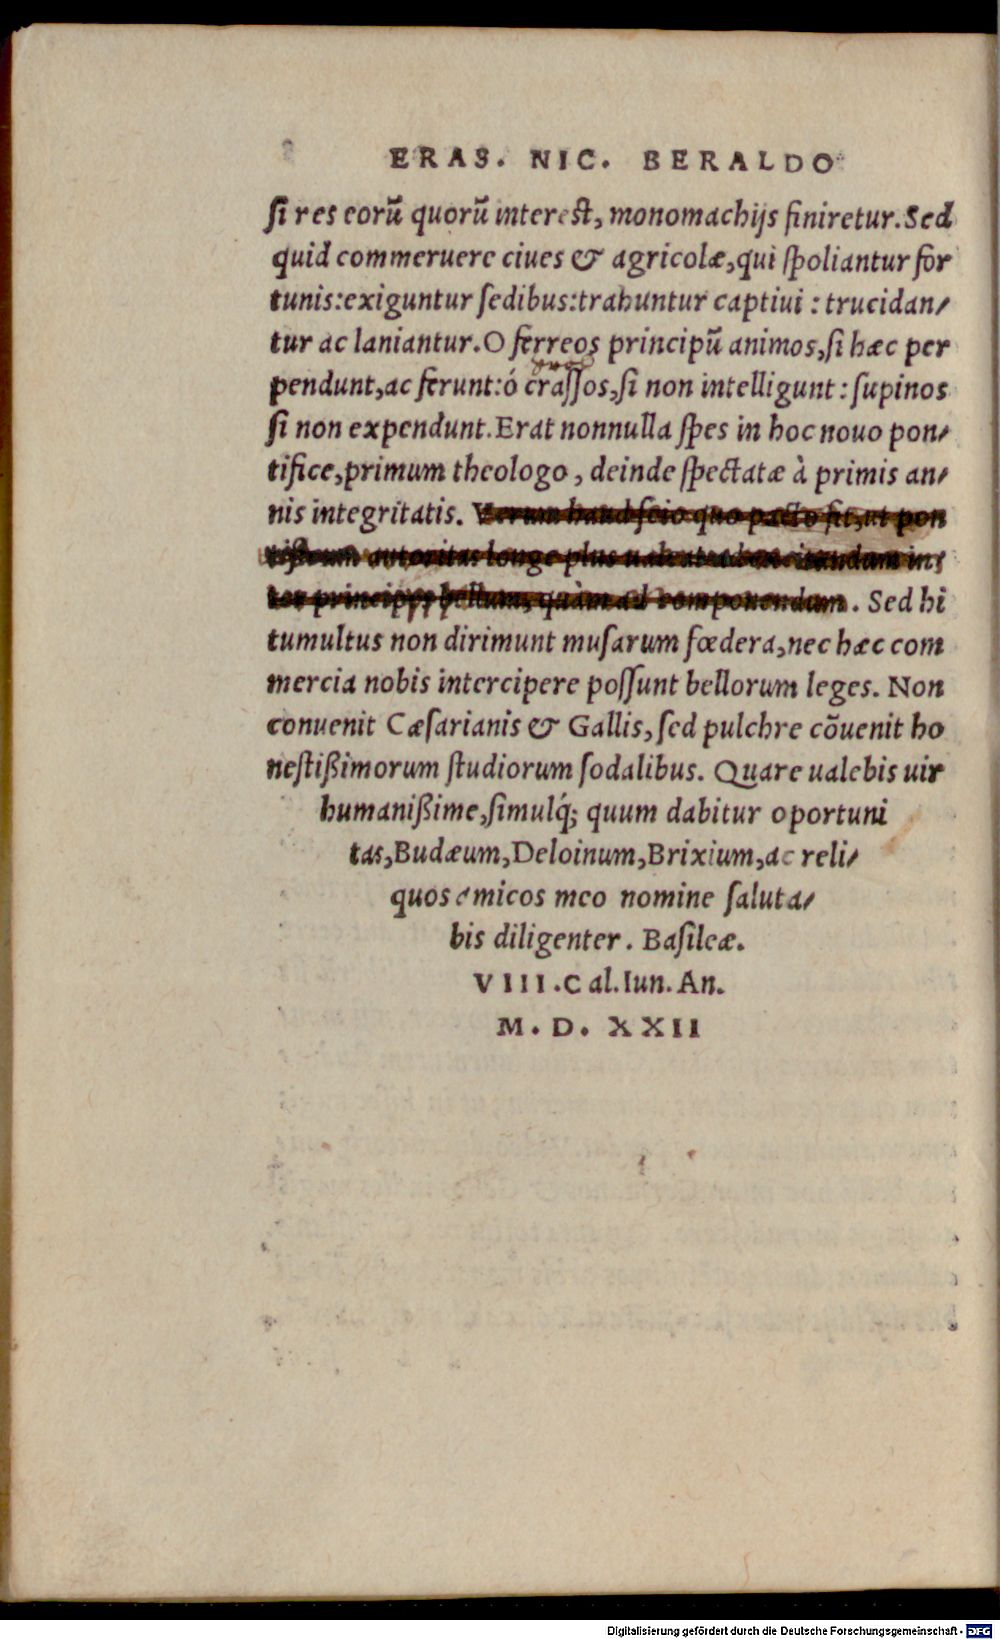 ERAS. NIC. BERALDO
si res eorũ quorũ interest, monomachijs finiretur. Sed
quid commeruere ciues & agricolæ, qui spoliantur for
tunis: exiguntur sedibus: trahuntur captiui: trucidan-
tur ac laniantur. O ferreos principũ animos, si hæc per
pendunt, ac ferunt: ó crassos, si non intelligunt: supinos
si non expendunt. Erat nonnulla spes in hoc nouo pon-
tifice, primum theologo, deinde spectatæ à primis an-
nis integritatis. Verum haud scio quo pacto fit, ut pon
tificum autoritas longe plus ualeat ad in-
ter principes bellum, quàm ad componendum. Sed hi
tumultus non dirimunt musarum fœdera, nec hæc com
mercia nobis intercipere possunt bellorum leges. Non
conuenit Cæsarianis & Gallis, sed pulchre cõuenit ho
nestißimorum studiorum sodalibus. Quare ualebis uir
humanißime, simulq́; quum dabitur oportuni
tas, Budæum, Deloinum, Brixium, ac reli-
quos amicos meo nomine saluta-
bis diligenter. Basileæ.
VIII. Cal. Iun. An.
M. D. XXII
Digitalisierung gefördert durch die Deutsche Forschungsgemeinschaft - DFG